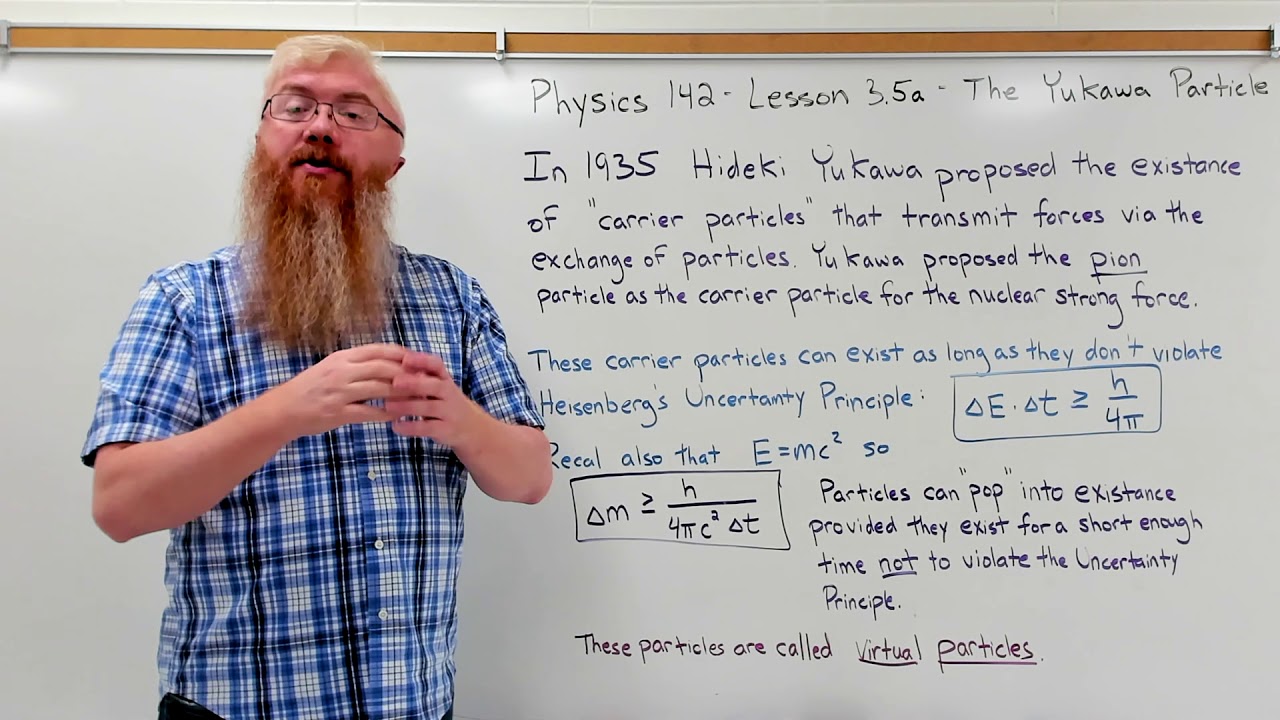 Physics 142 - Lesson 3.5a - The Yukawa Particle
In 1935 Hideki Yukawa proposed the existance
of "carrier particles" that transmit forces via the
exchange of particles. Yukawa proposed the pion
particle as the carrier particle for the nuclear strong force.
These carrier particles can exist as long as they don't violate
Heisenberg's Uncertainty Principle: ΔE·Δt ≥ h/4π
Recal also that E=mc² so
Δm ≥ h/4πc²Δt
Particles can "pop" into existance
provided they exist for a short enough
time not to violate the Uncertainty
Principle.
These particles are called virtual particles.